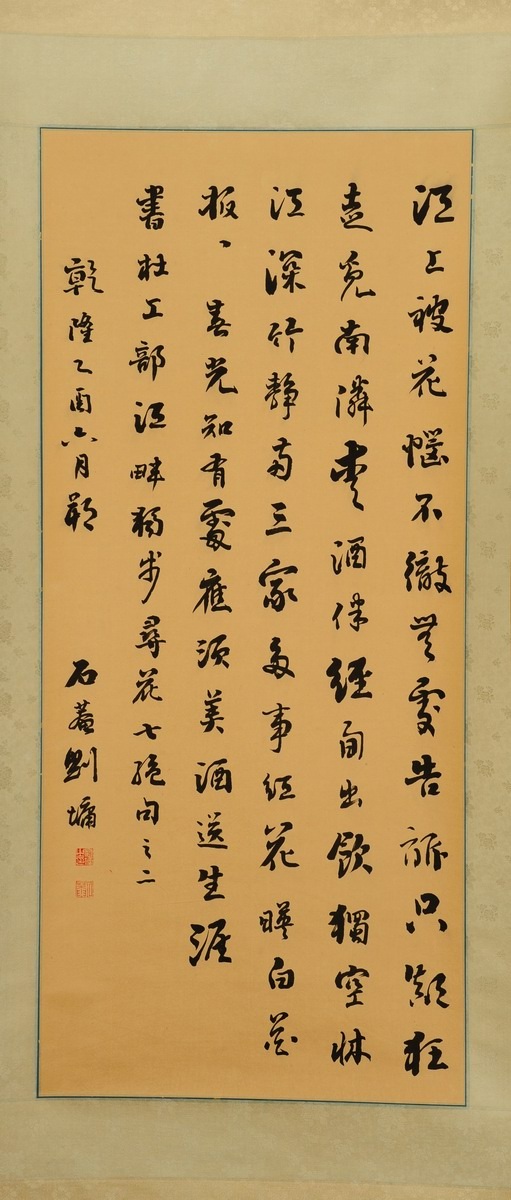 江上被花惱不徹無處告訴只顛狂
走覓南隣愛酒伴經旬出飲獨空牀
江深竹靜兩三家多事紅花暎白花
板、春光知有處應須美酒送生涯
書杜工部江畔獨步尋花七絕句之二
乾隆乙酉六月朔 石菴劉墉